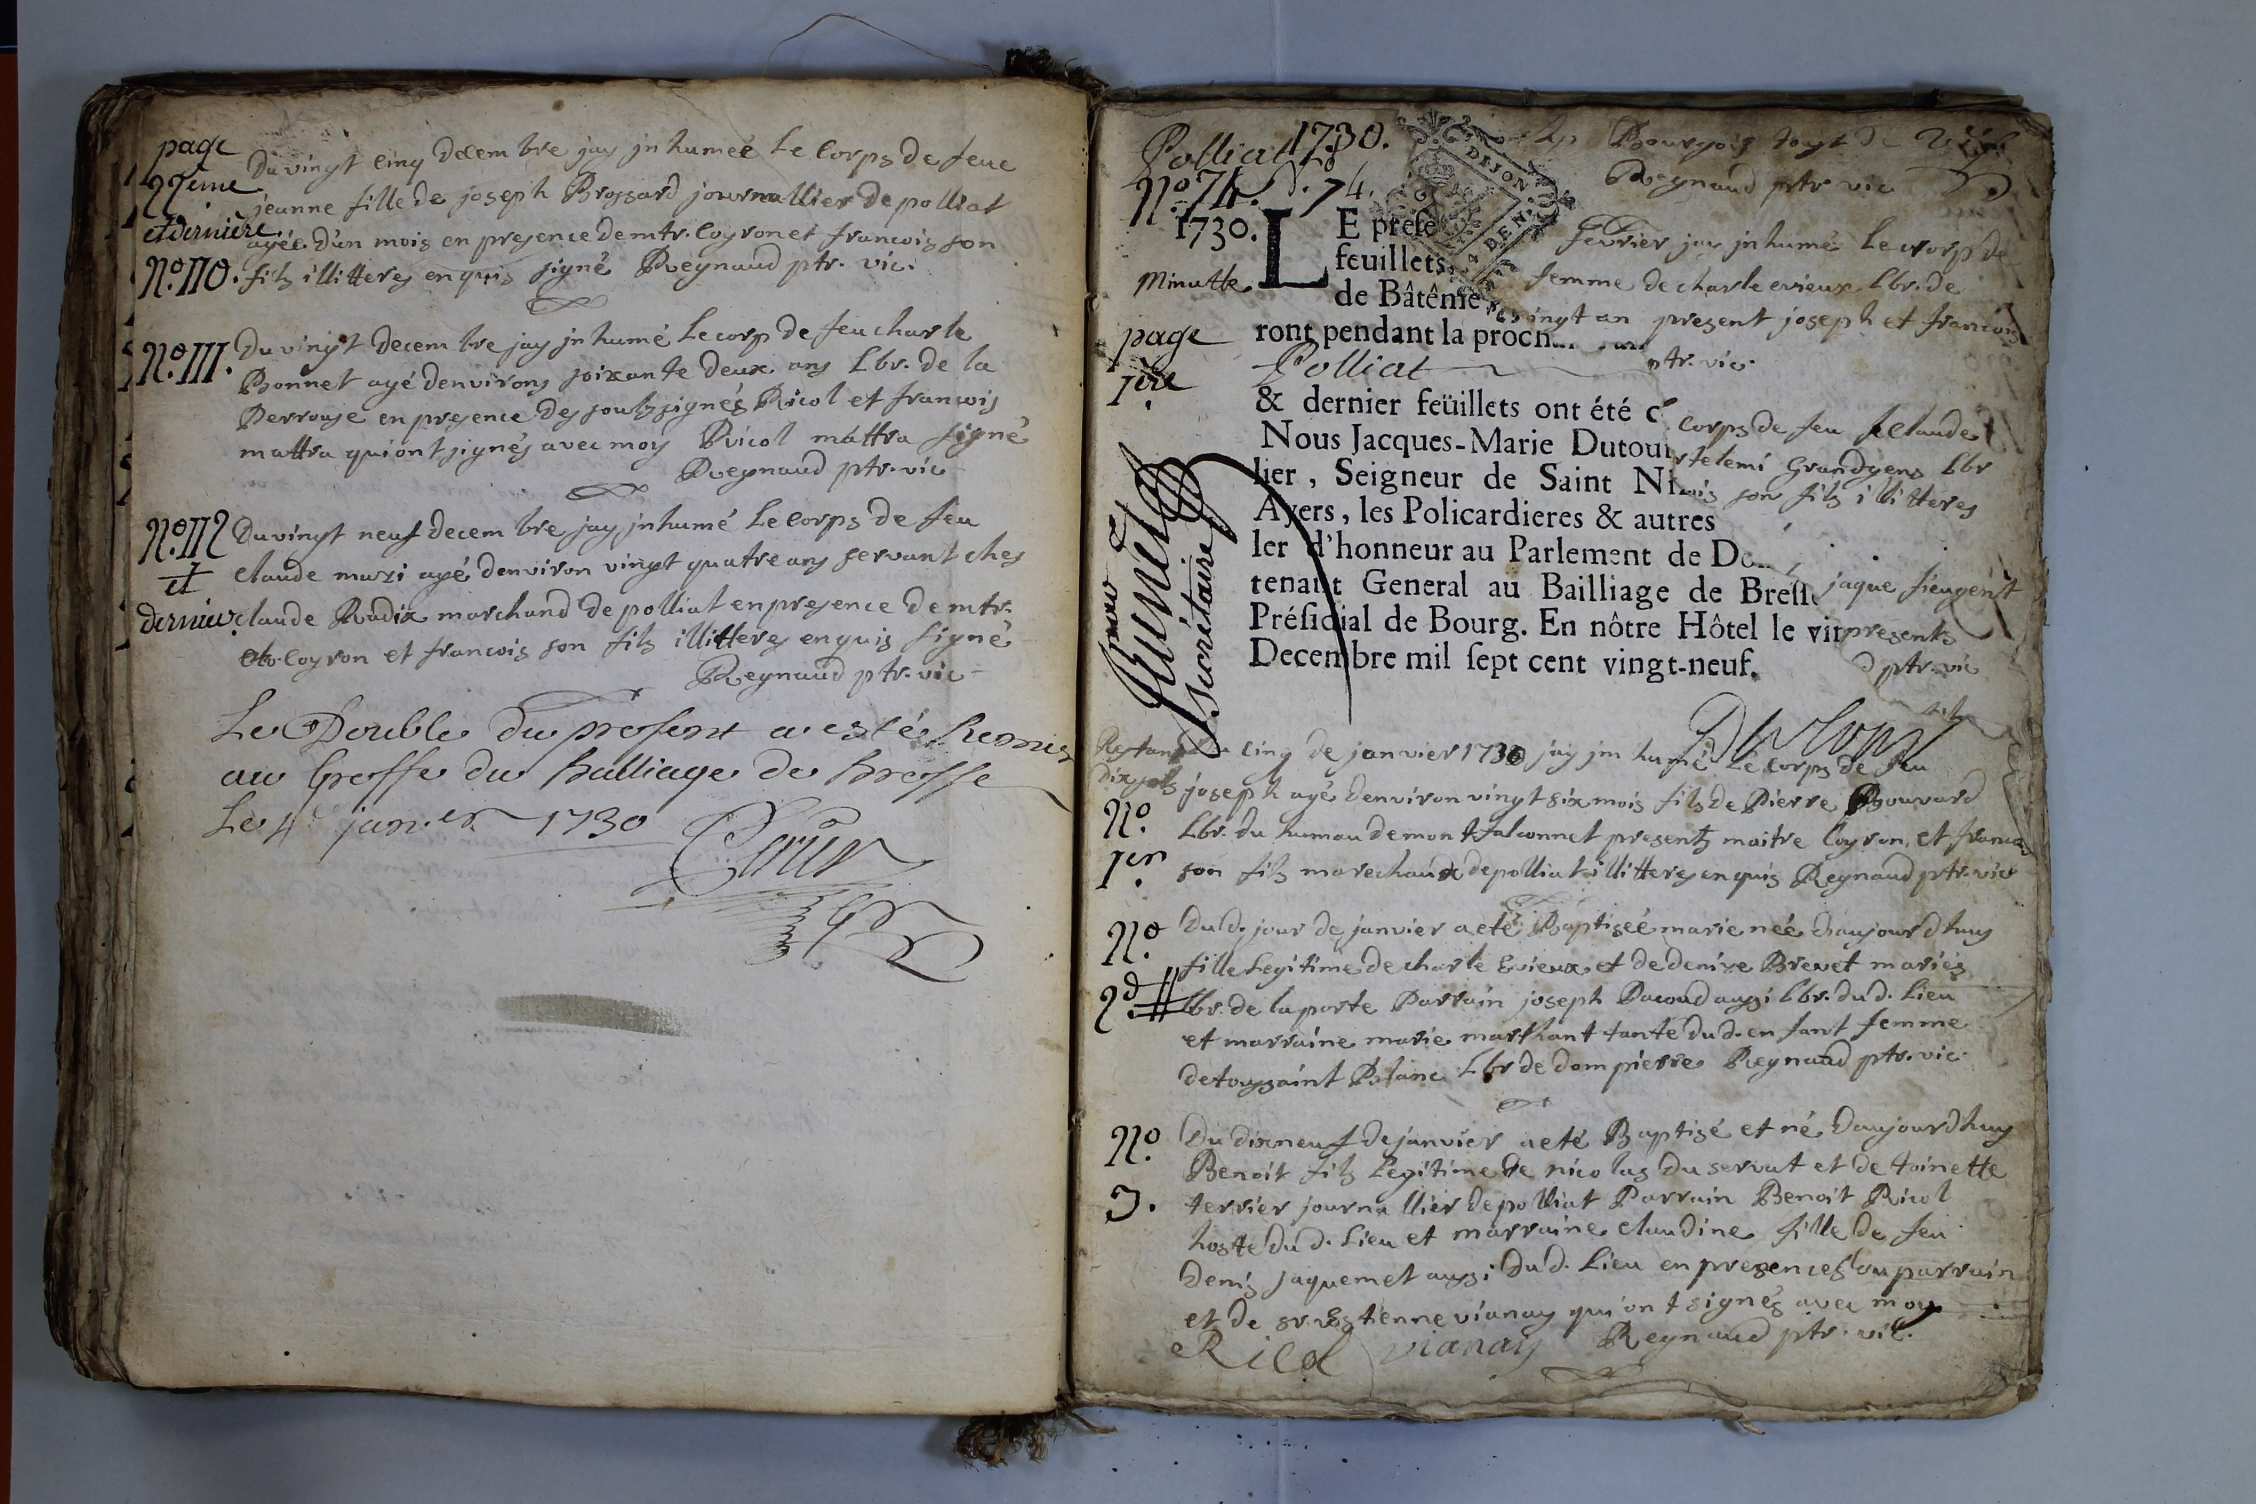 page
22eme
et derniere
N.o 110.
Du vingt cinq decembre jay jnhumeé Le Corps de feue
jeanne fille de joseph Brossard journallier de polliat
ageé d'un mois en presence de mtr. Coyron et francois son
fils illitteres enquis signé Reynaud ptr. vic.
N.o 111.
Du vingt decembre jay jnhumé Le corp de feu charle
Bonnet agé denvirons soixante deux ans Lbr. de la
Perrouse en presence des soulzsignés Ricol et francois
mattra qui ont signés avec moy Ricol mattra signé
Reynaud ptr. vic
N.o 112
et
dernier
Du vingt neuf decembre jay jnhumé Le Corps de feu
claude mazi agé denviron vingt quatre ans servant ches
claude Roudix marchand de polliat en presence de mtr.
Coyron et francois son fils illitteres enquis signé
Reynaud ptr. vic
Le Double du present a esté Remis
au Greffe du balliage de bresse
Le 4e janer. 1730
Polliat 1730.
N.o 74. d. 74.
1730.
Minutte
page
1ere
LE prese
feuillets
de Bâtême
ront pendant la proch
Polliat
& dernier feüillets ont été c
Nous Jacques-Marie Dutour
lier, Seigneur de Saint Ni
Ayers, les Policardieres & autres
ler d'honneur au Parlement de Do
tenant General au Bailliage de Bress
Présidial de Bourg. En nôtre Hôtel le vin
Decembre mil sept cent vingt-neuf.
DIJON
DEN.
secrétaire
Bourgois
Reynaud ptr vic
fevrier jay jnhumé Le corp de
femme de charle evieux Lbr. de
vingt an present joseph et francois
ptr. vic.
corps de feu claude
rtelemi Grandgens Lbr
son fils illitteres
jaque
presents
d ptr. vic
N.o
1er.
cinq de janvier 1730 jay jnhumé Le corps de feu
joseph agé denviron vingt six mois fils de Pierre Bouvard
Lbr. du humau de montfalconnet presentz maitre Coyron, et francois
son fils marechaux de polliat illitteres enquis Reynaud ptr. vic
N.o
2d.
Du d. jour de janvier a eté Baptiseé marie née daujourdhuy
fille Legitime de charle Evieux et de denise Brevet mariés
Lbr. de la porte Parrain joseph Pacoud aussi Lbr. du d. Lieu
et marraine marie marthant tante du d. enfant femme
de toussaint Blanc Lbr de dompierre Reynaud ptr. vic.
N.o
3.
Du dixneuf de janvier a eté Baptisé et né daujourdhuy
Benoit fils Legitime de nicolas du servat et de toinette
terrier journallier de polliat Parrain Benoit Ricol
hoste du d. Lieu et marraine claudine fille de feu
denis jaquemet aussi du d. Lieu en presences du parrain
et de sr. Estienne vianay qui ont signés avec moy
Ricol vianay Reynaud ptr. vic.